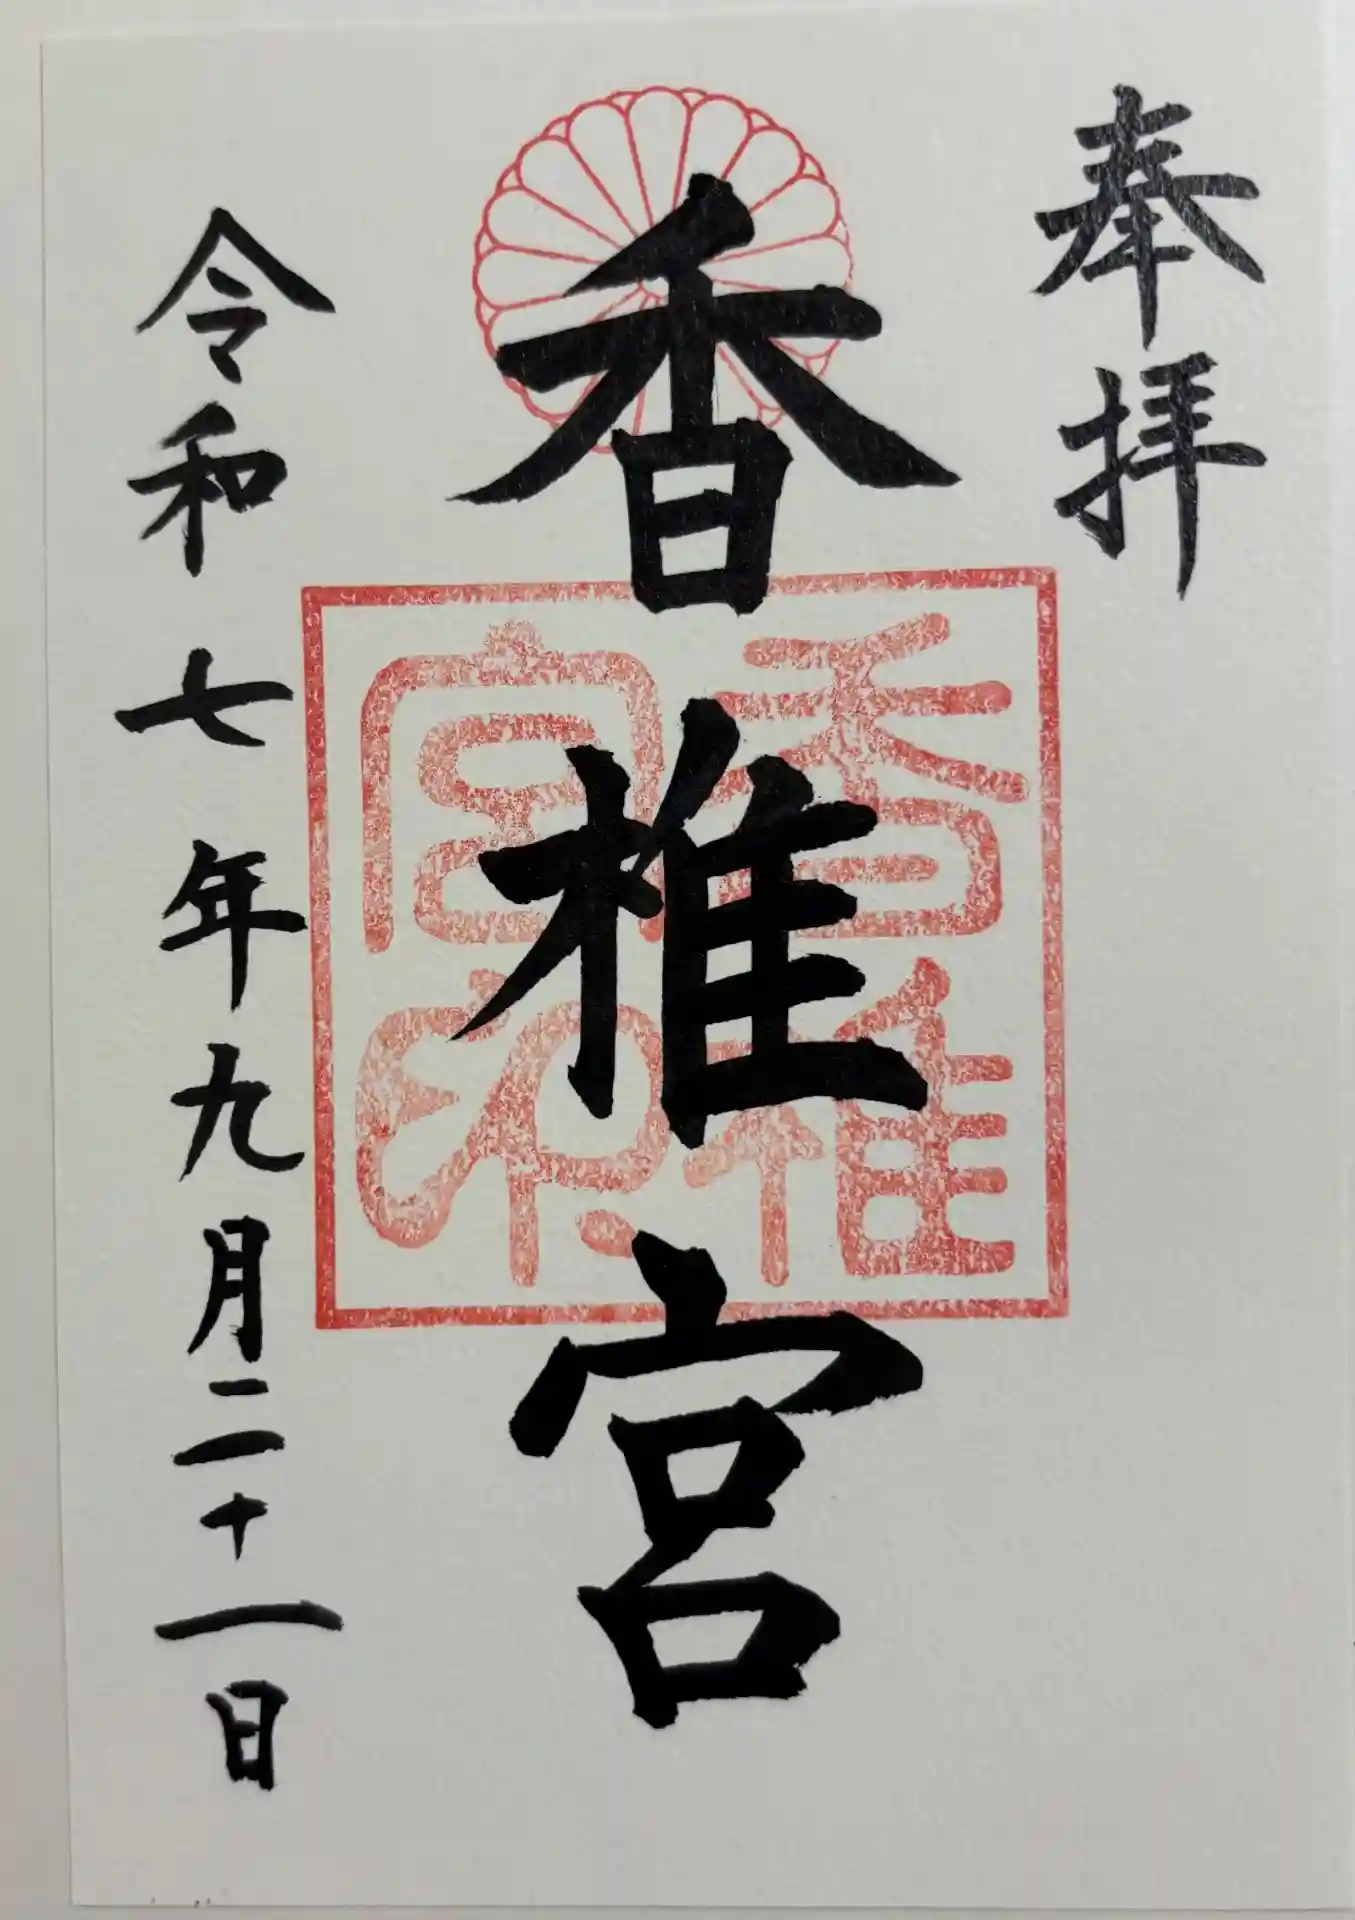 奉拝
香椎宮
香椎
宮印
令和七年九月二十一日